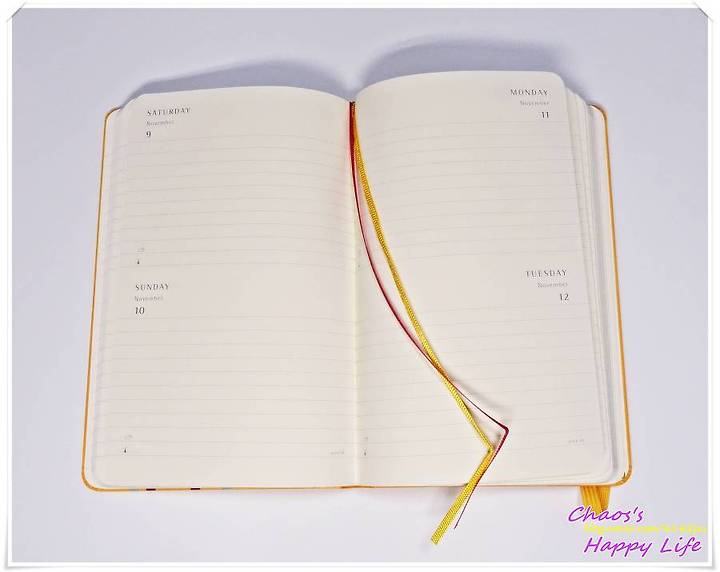 SATURDAY
November
9
SUNDAY
November
10
MONDAY
November
11
TUESDAY
November
12
Chaos's
Happy Life